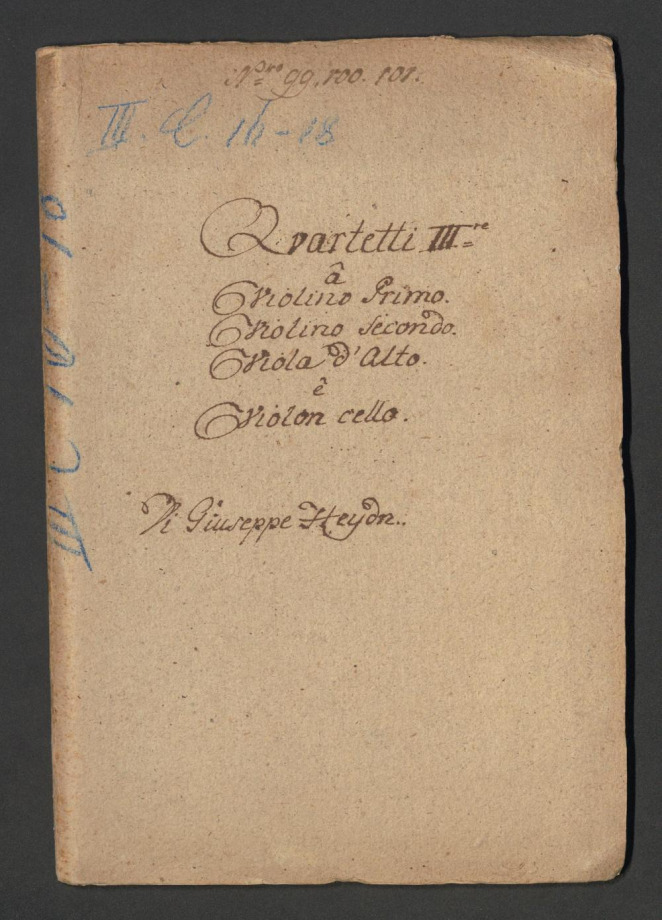 Nro 99, 100. 101.
III. C. 16-18
Quartetti IIIre
â
Violino Primo.
Violino Secondo.
Viola d'Alto.
ê
Violon cello.
Di Giuseppe Heydn..